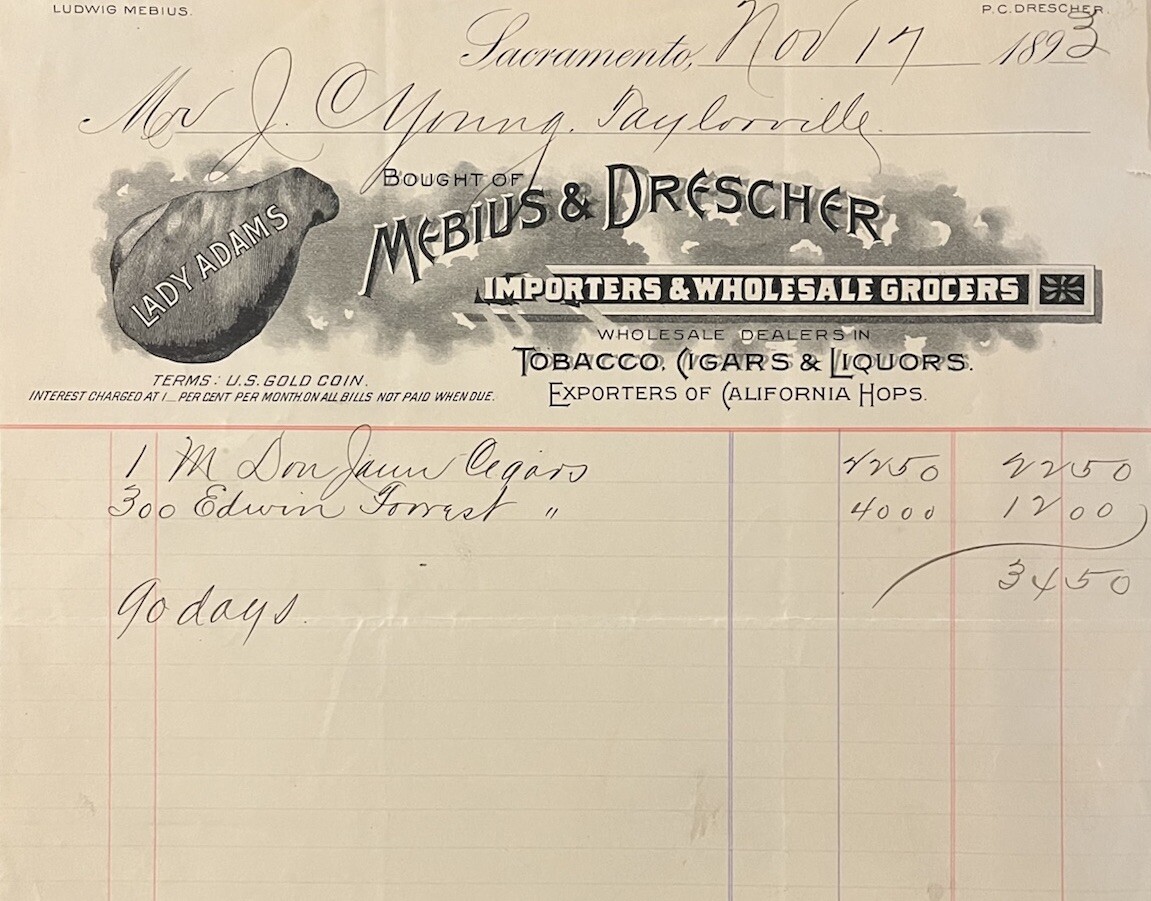 LUDWIG MEBIUS.
P.C. DRESCHER.
Sacramento, Nov 17 1893
Mr J. C Young. Taylorville.
BOUGHT OF
MEBIUS & DRESCHER
LADY ADAMS
IMPORTERS & WHOLESALE GROCERS
WHOLESALE DEALERS IN
TOBACCO, CIGARS & LIQUORS.
EXPORTERS OF CALIFORNIA HOPS.
TERMS: U.S. GOLD COIN.
INTEREST CHARGED AT 1_ PER CENT PER MONTH ON ALL BILLS NOT PAID WHEN DUE.
1 M Don Jaun Cigars 2250 2250
300 Edwin Forrest " 4000 1200
3450
90 days.